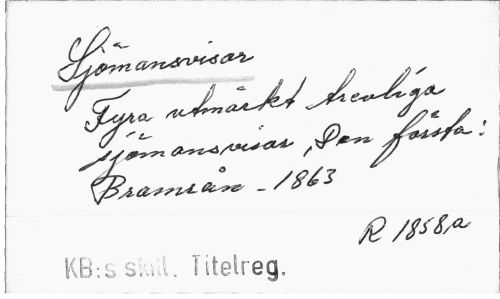 Sjömansvisor
Fyra utmärkt trevliga
sjömansvisor, Den första:
Bramsån - 1863
R 1858,a
KB:s skill. Titelreg.